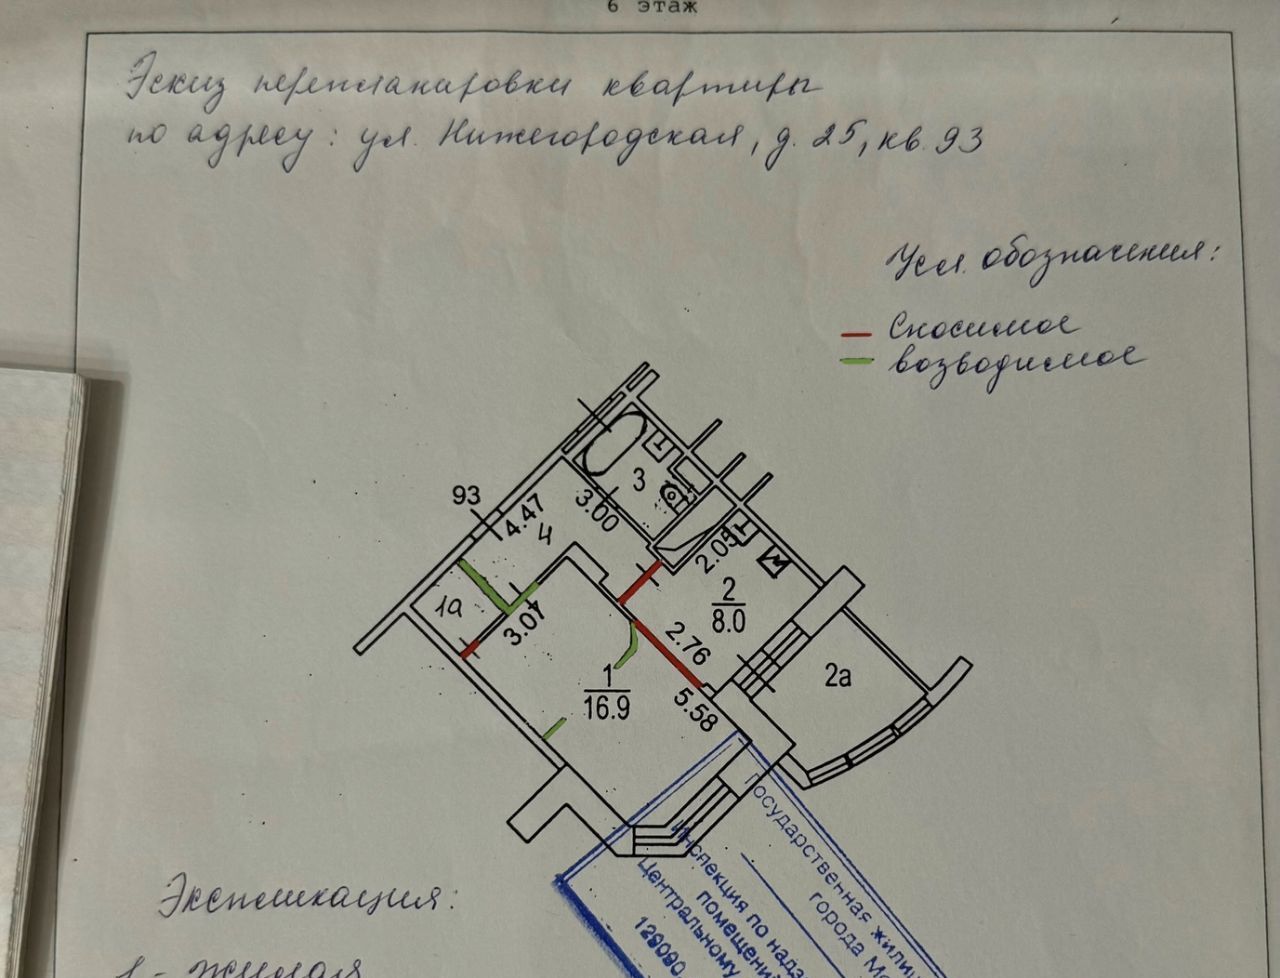 6 этаж
Эскиз перепланировки квартиры
по адресу: ул. Нижегородская, д. 25, кв. 93
Усл. обозначения:
Сносимое
возводимое
93
4.47
4
3.00
3
2.05
2
8.0
1а
3.07
2.76
2а
1
16.9
5.58
Государственная жилищ
города Мо
Инспекция по надз
помещений
Центральному
129090
Экспликация:
1 - жилая